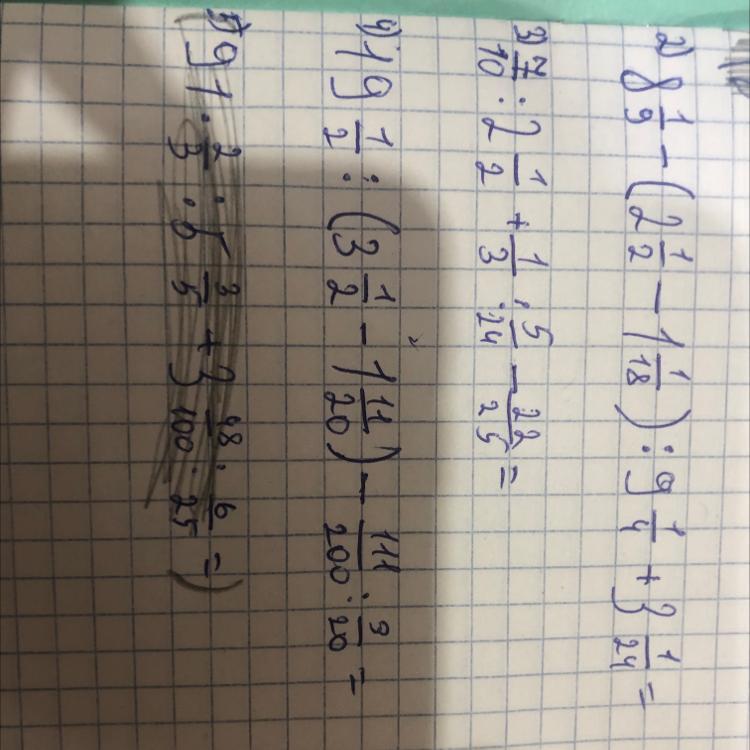 2) 8 1/9 - (2 1/2 - 1 1/18) : 9 1/4 + 3 1/24 =
3) 7/10 : 2 1/2 + 1/3 : 5/24 - 22/25 =
4) 19 1/2 : (3 1/2 - 1 11/20) - 111/200 : 3/20 =
5) 91 : 2/3 : 5 3/5 + 3 48/100 : 6/25 =)